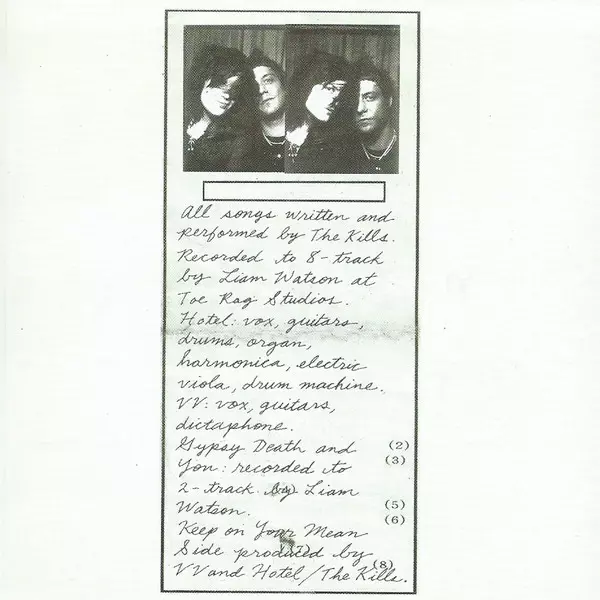 All songs written and
performed by The Kills.
Recorded to 8-track
by Liam Watson at
Toe Rag Studios.
Hotel: vox, guitars,
drums, organ,
harmonica, electric
viola, drum machine.
VV: vox, guitars,
dictaphone.
Gypsy Death and (2)
You: recorded to (3)
2-track by Liam
Watson. (5)
(6)
Keep on Your Mean
Side produced by
VV and Hotel/The Kills. (8)